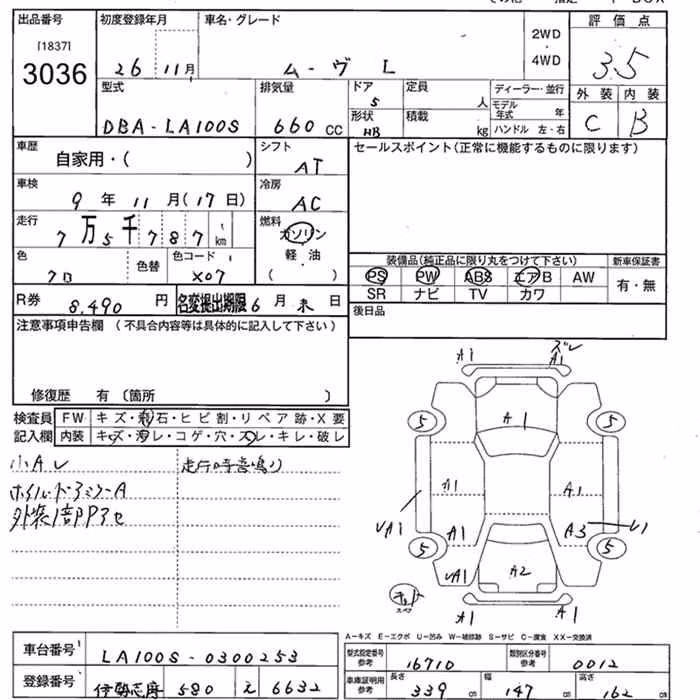 出品番号 初度登録年月 車名・グレード 2WD・4WD 評価点
[1837]
3036 26 11月 ムーヴ L 3.5
型式 排気量 ドア 5 定員 人 ディーラー・並行 外装 内装
DBA-LA100S 660 CC 形状 HB 積載 kg モデル年式 年 ハンドル 左・右 C B
車歴 自家用・( ) シフト AT セールスポイント(正常に機能するものに限ります)
車検 9年 11月(17日) 冷房 AC
走行 7万5千787 km 燃料 ガソリン
軽・油
( )
色 クロ 色替 色コード X07
装備品(純正品に限り丸をつけて下さい) 新車保証書
PS PW ABS エアB AW 有・無
SR ナビ TV カワ
R券 8,490円 名変提出期限 6月末日
後日品
注意事項申告欄 (不具合内容等は具体的に記入して下さい)
修復歴 有 〔箇所 〕
検査員記入欄 FW キズ・飛石・ヒビ割・リペア跡・X要
内装 キズ・汚レ・コゲ・穴・スレ・キレ・破レ
小A〃 走行時音鳴り
ホイル・ドアミラーA
外装1部アセ
A1 ズレ A1
5 A1 5
A1 A1
UA1 A1 A3 U1
5 5
UA1 A2
A1 A1
A-キズ E-エクボ U-凹み W-補修跡 S-サビ C-腐食 XX-交換済
車台番号 LA100S-0300253
型式指定番号 参考 16710 類別区分番号 参考 0012
登録番号 伊勢志摩 580 え 6632
車庫証明用 参考 長さ 339 cm 幅 147 cm 高さ 162 cm